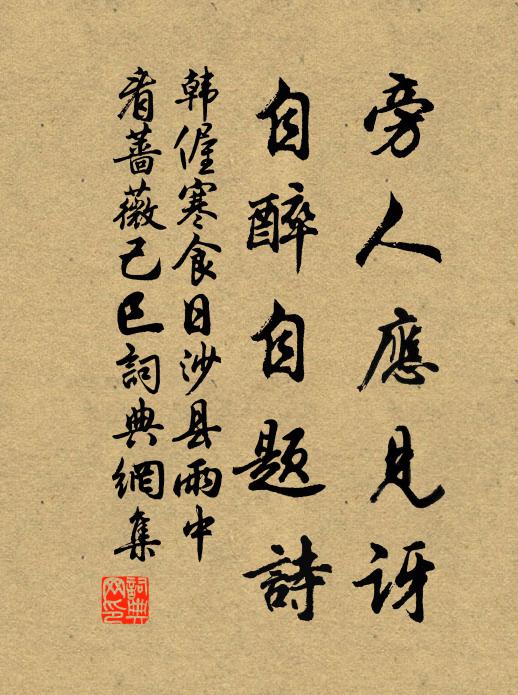 旁人應見訝
自醉自题詩
韩偓寒食日沙县雨中
看蔷薇己巳詞典網集
詞典网印